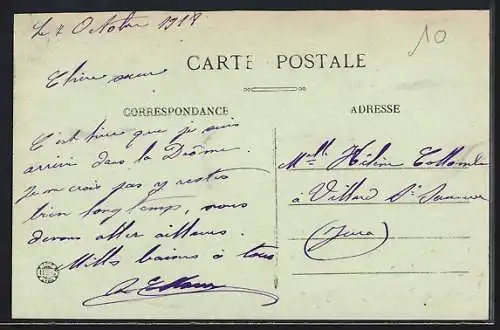 Le 7 Octobre 1918
10
CARTE POSTALE
Chère sœur
CORRESPONDANCE
ADRESSE
C'est hier que je suis
arrivé dans la Drôme.
Je ne crois pas y rester
bien longtemps, nous
devons aller ailleurs.
Mille baisers à tous
Melle Hélène
à Villard St Sauveur
(Jura)